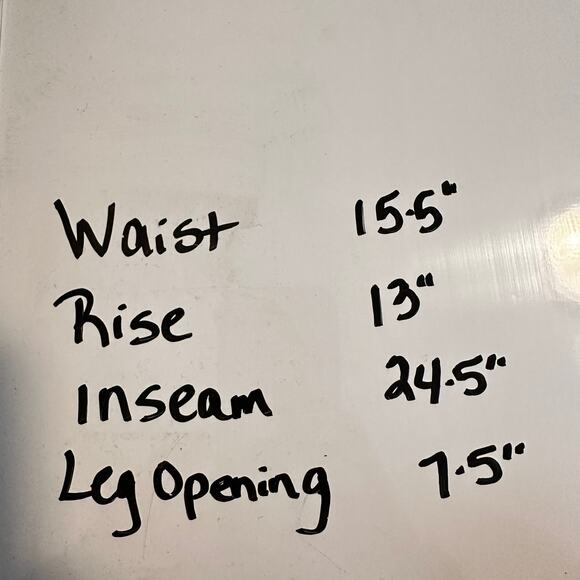 Waist 15.5"
Rise 13"
Inseam 24.5"
Leg Opening 7.5"